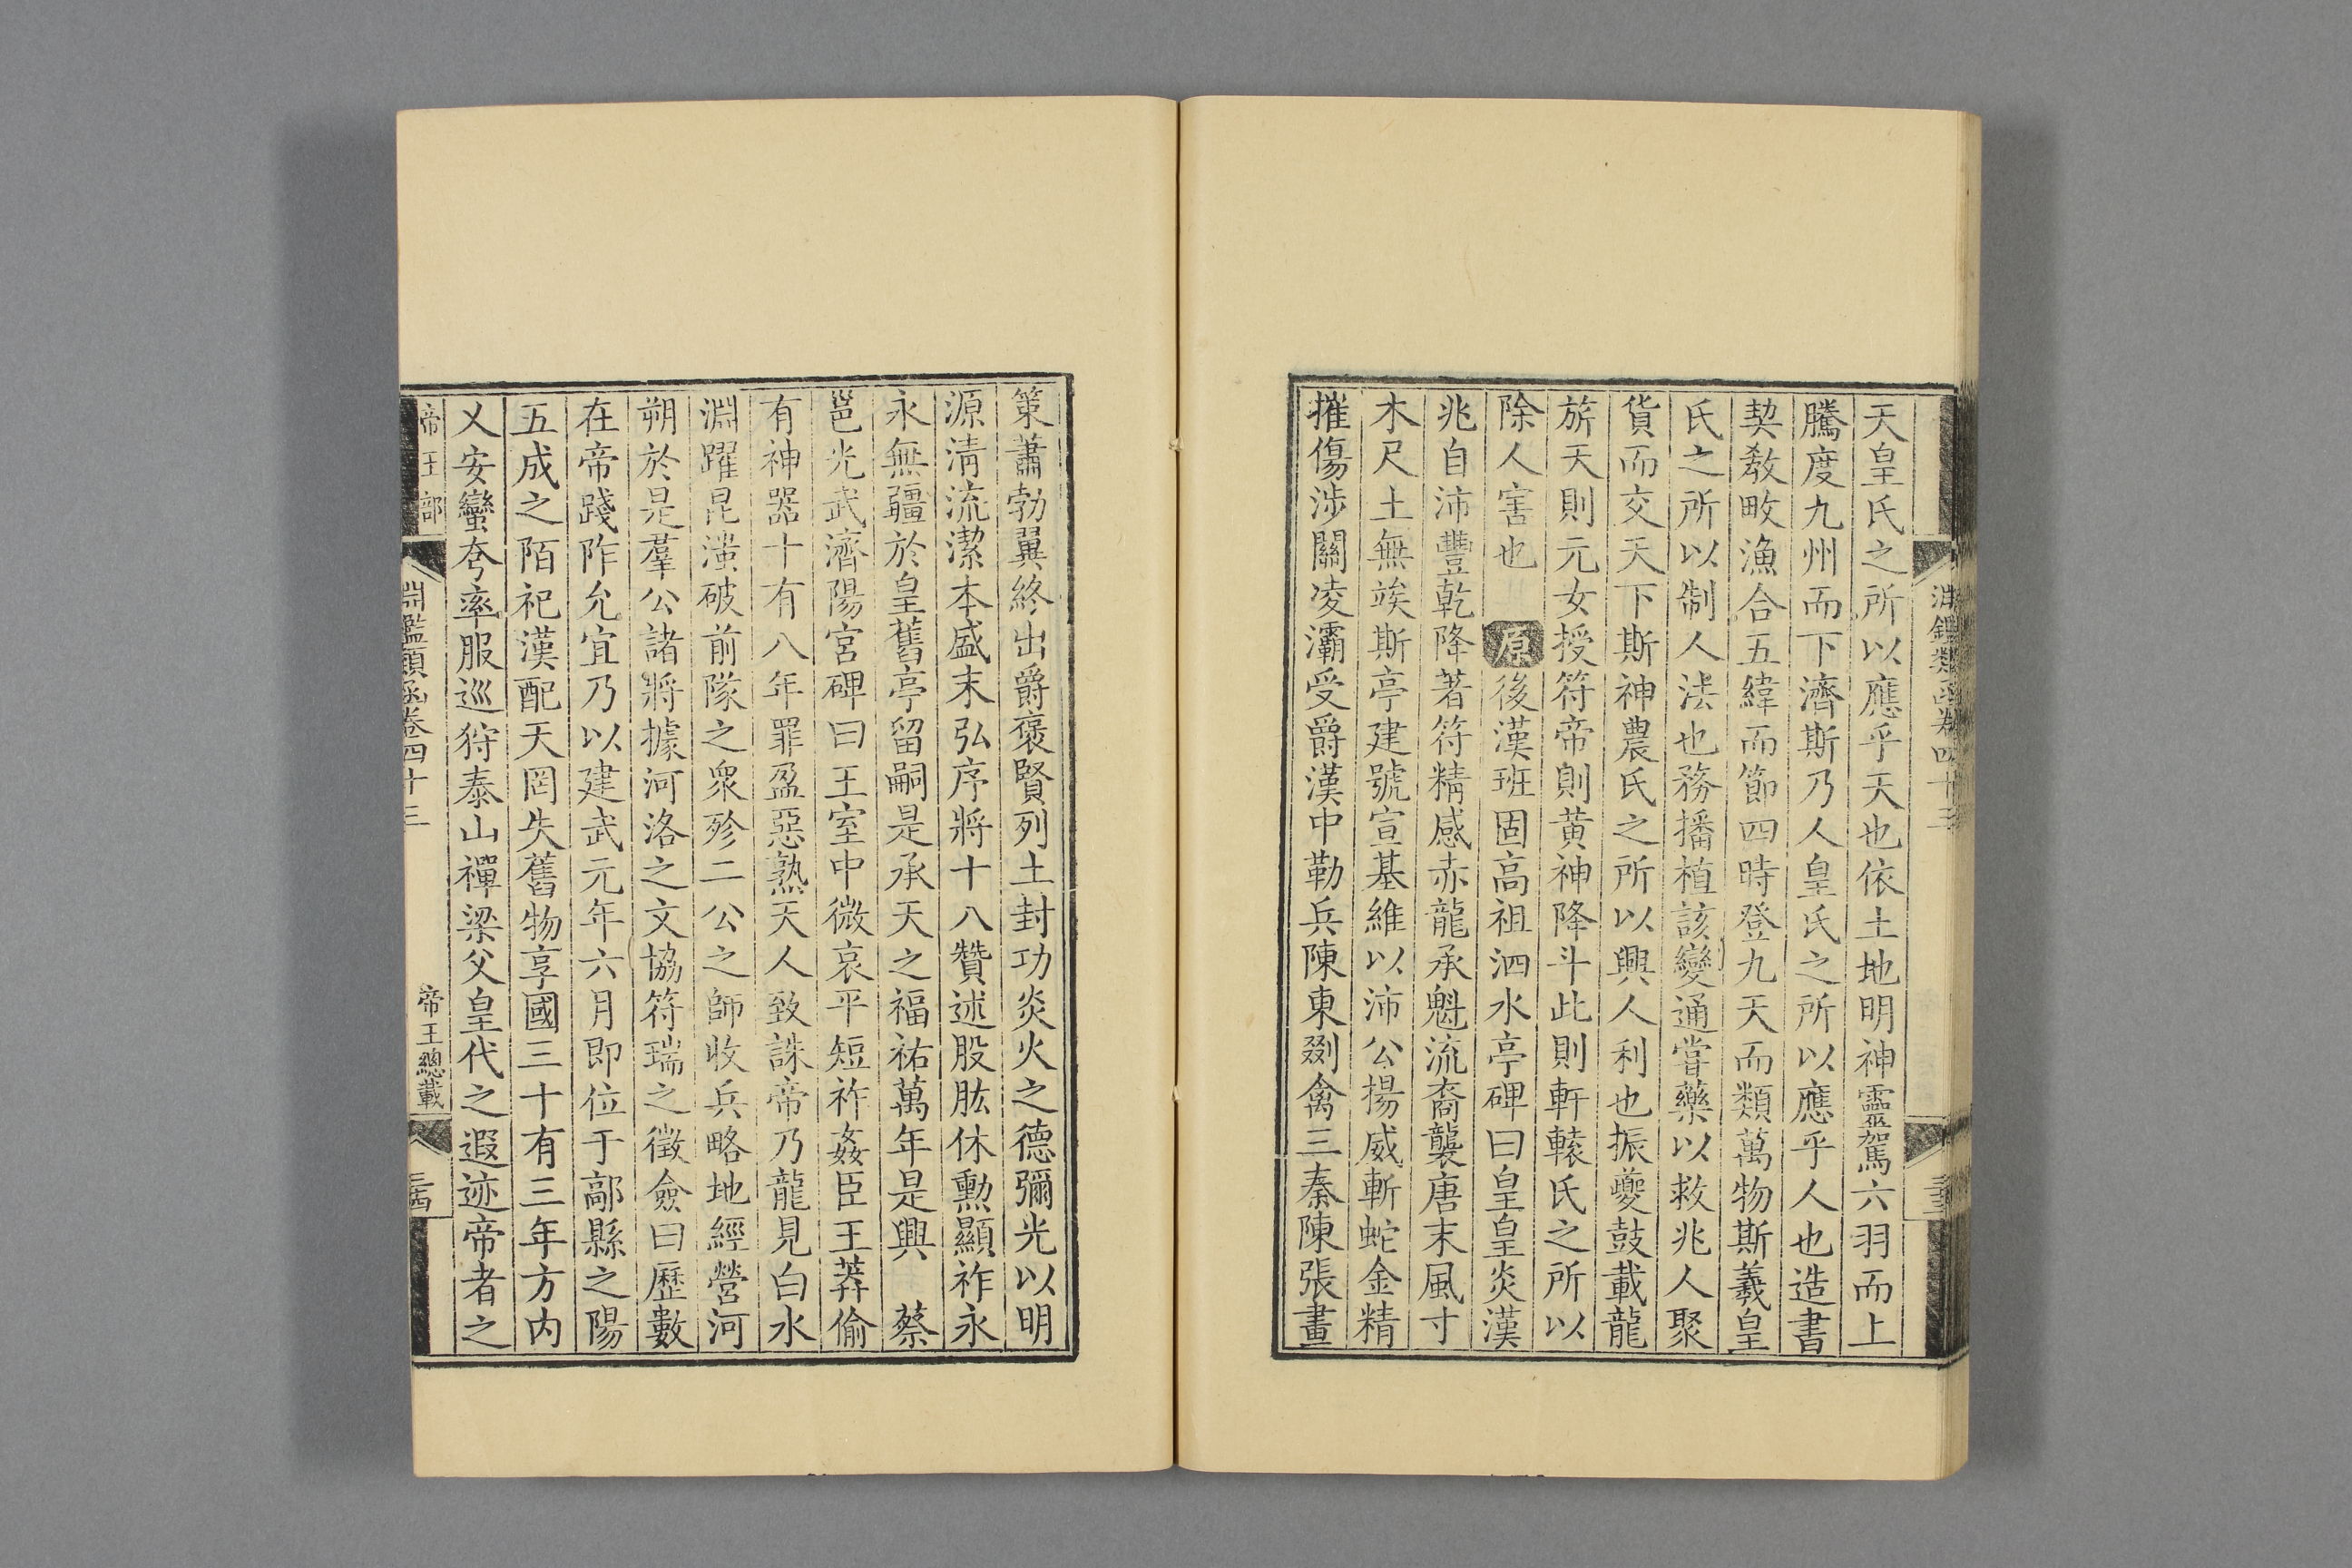 淵鑑類函卷四十三
三十三
天皇氏之所以應乎天也依土地明神靈駕六羽而上
騰度九州而下濟斯乃人皇氏之所以應乎人也造書
契敎畋漁合五緯而節四時登九天而類萬物斯羲皇
氏之所以制人法也務播植該變通嘗藥以救兆人聚
貨而交天下斯神農氏之所以興人利也振夔鼓載龍
旂天則元女授符帝則黄神降斗此則軒轅氏之所以
除人害也 原 後漢班固高祖泗水亭碑曰皇皇炎漢
兆自沛豐乾降著符精感赤龍承魁流裔襲唐末風寸
木尺土無竢斯亭建號宣基維以沛公揚威斬蛇金精
摧傷涉關凌灞受爵漢中勒兵陳東剟禽三秦陳張畫
策蕭勃翼終出爵褒賢列土封功炎火之德彌光以明
源清流潔本盛末弘序將十八贊述股肱休勳顯祚永
永無疆於皇舊亭留嗣是承天之福祐萬年是興 蔡
邕光武濟陽宮碑曰王室中微哀平短祚姦臣王莽偷
有神器十有八年罪盈惡熟天人致誅帝乃龍見白水
淵躍昆滍破前隊之衆殄二公之師收兵略地經營河
朔於是羣公諸將據河洛之文協符瑞之徵僉曰歷數
在帝踐阼允宜乃以建武元年六月即位于鄗縣之陽
五成之陌祀漢配天罔失舊物享國三十有三年方内
乂安蠻夸率服巡狩泰山禪梁父皇代之遐迹帝者之
帝王部
淵鑑類函卷四十三
帝王總載
三十四